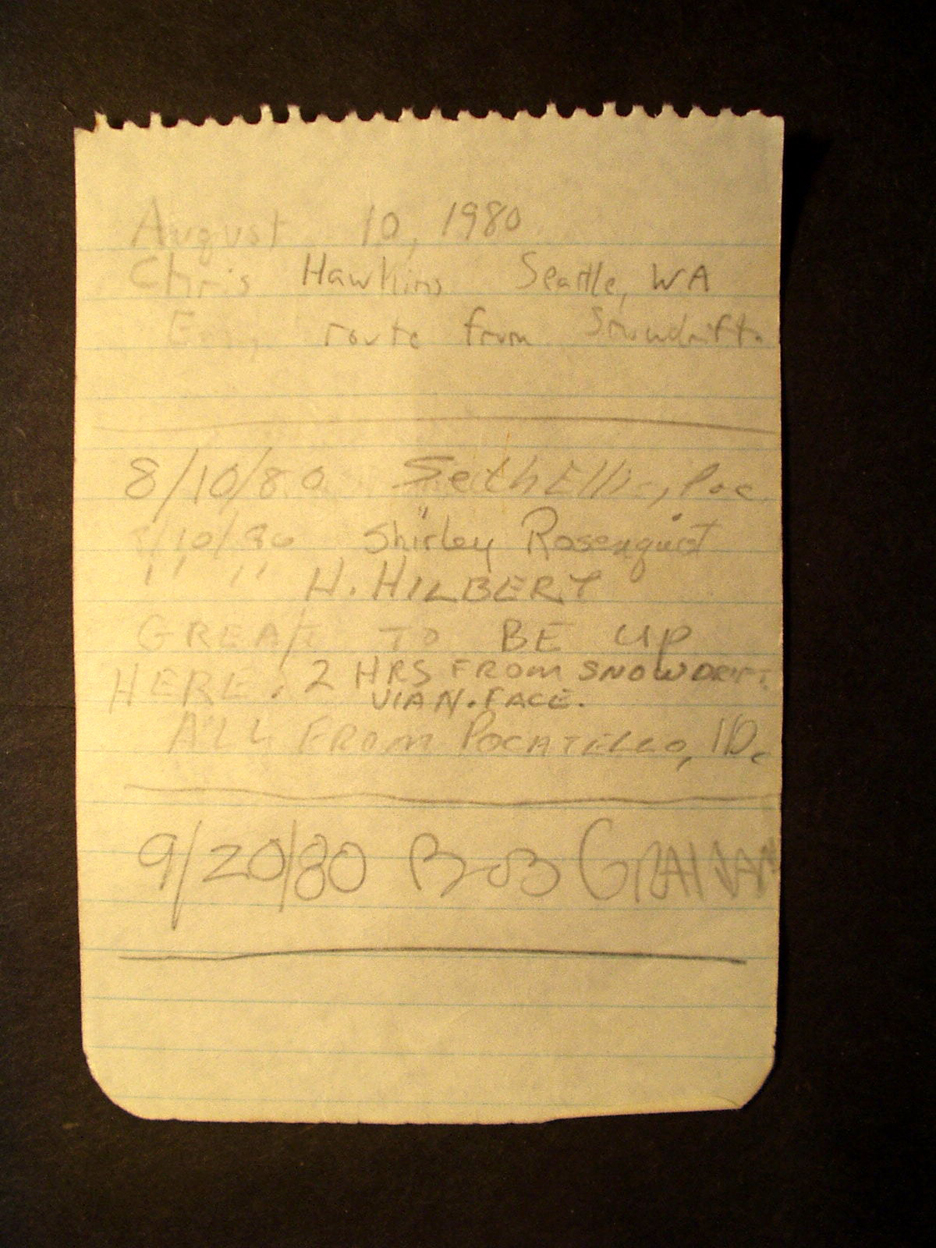 August 10, 1980
Chris Hawkins Seattle, WA
Easy route from Snowdrift.
8/10/80 Seth Ellis, Poc
8/10/80 Shirley Rosenquist
" " H. HILBERT
GREAT TO BE UP
HERE. 2 HRS FROM SNOWDRIFT
VIA N. FACE.
ALL FROM POCATELLO, ID.
9/20/80 BOB GRAHAM